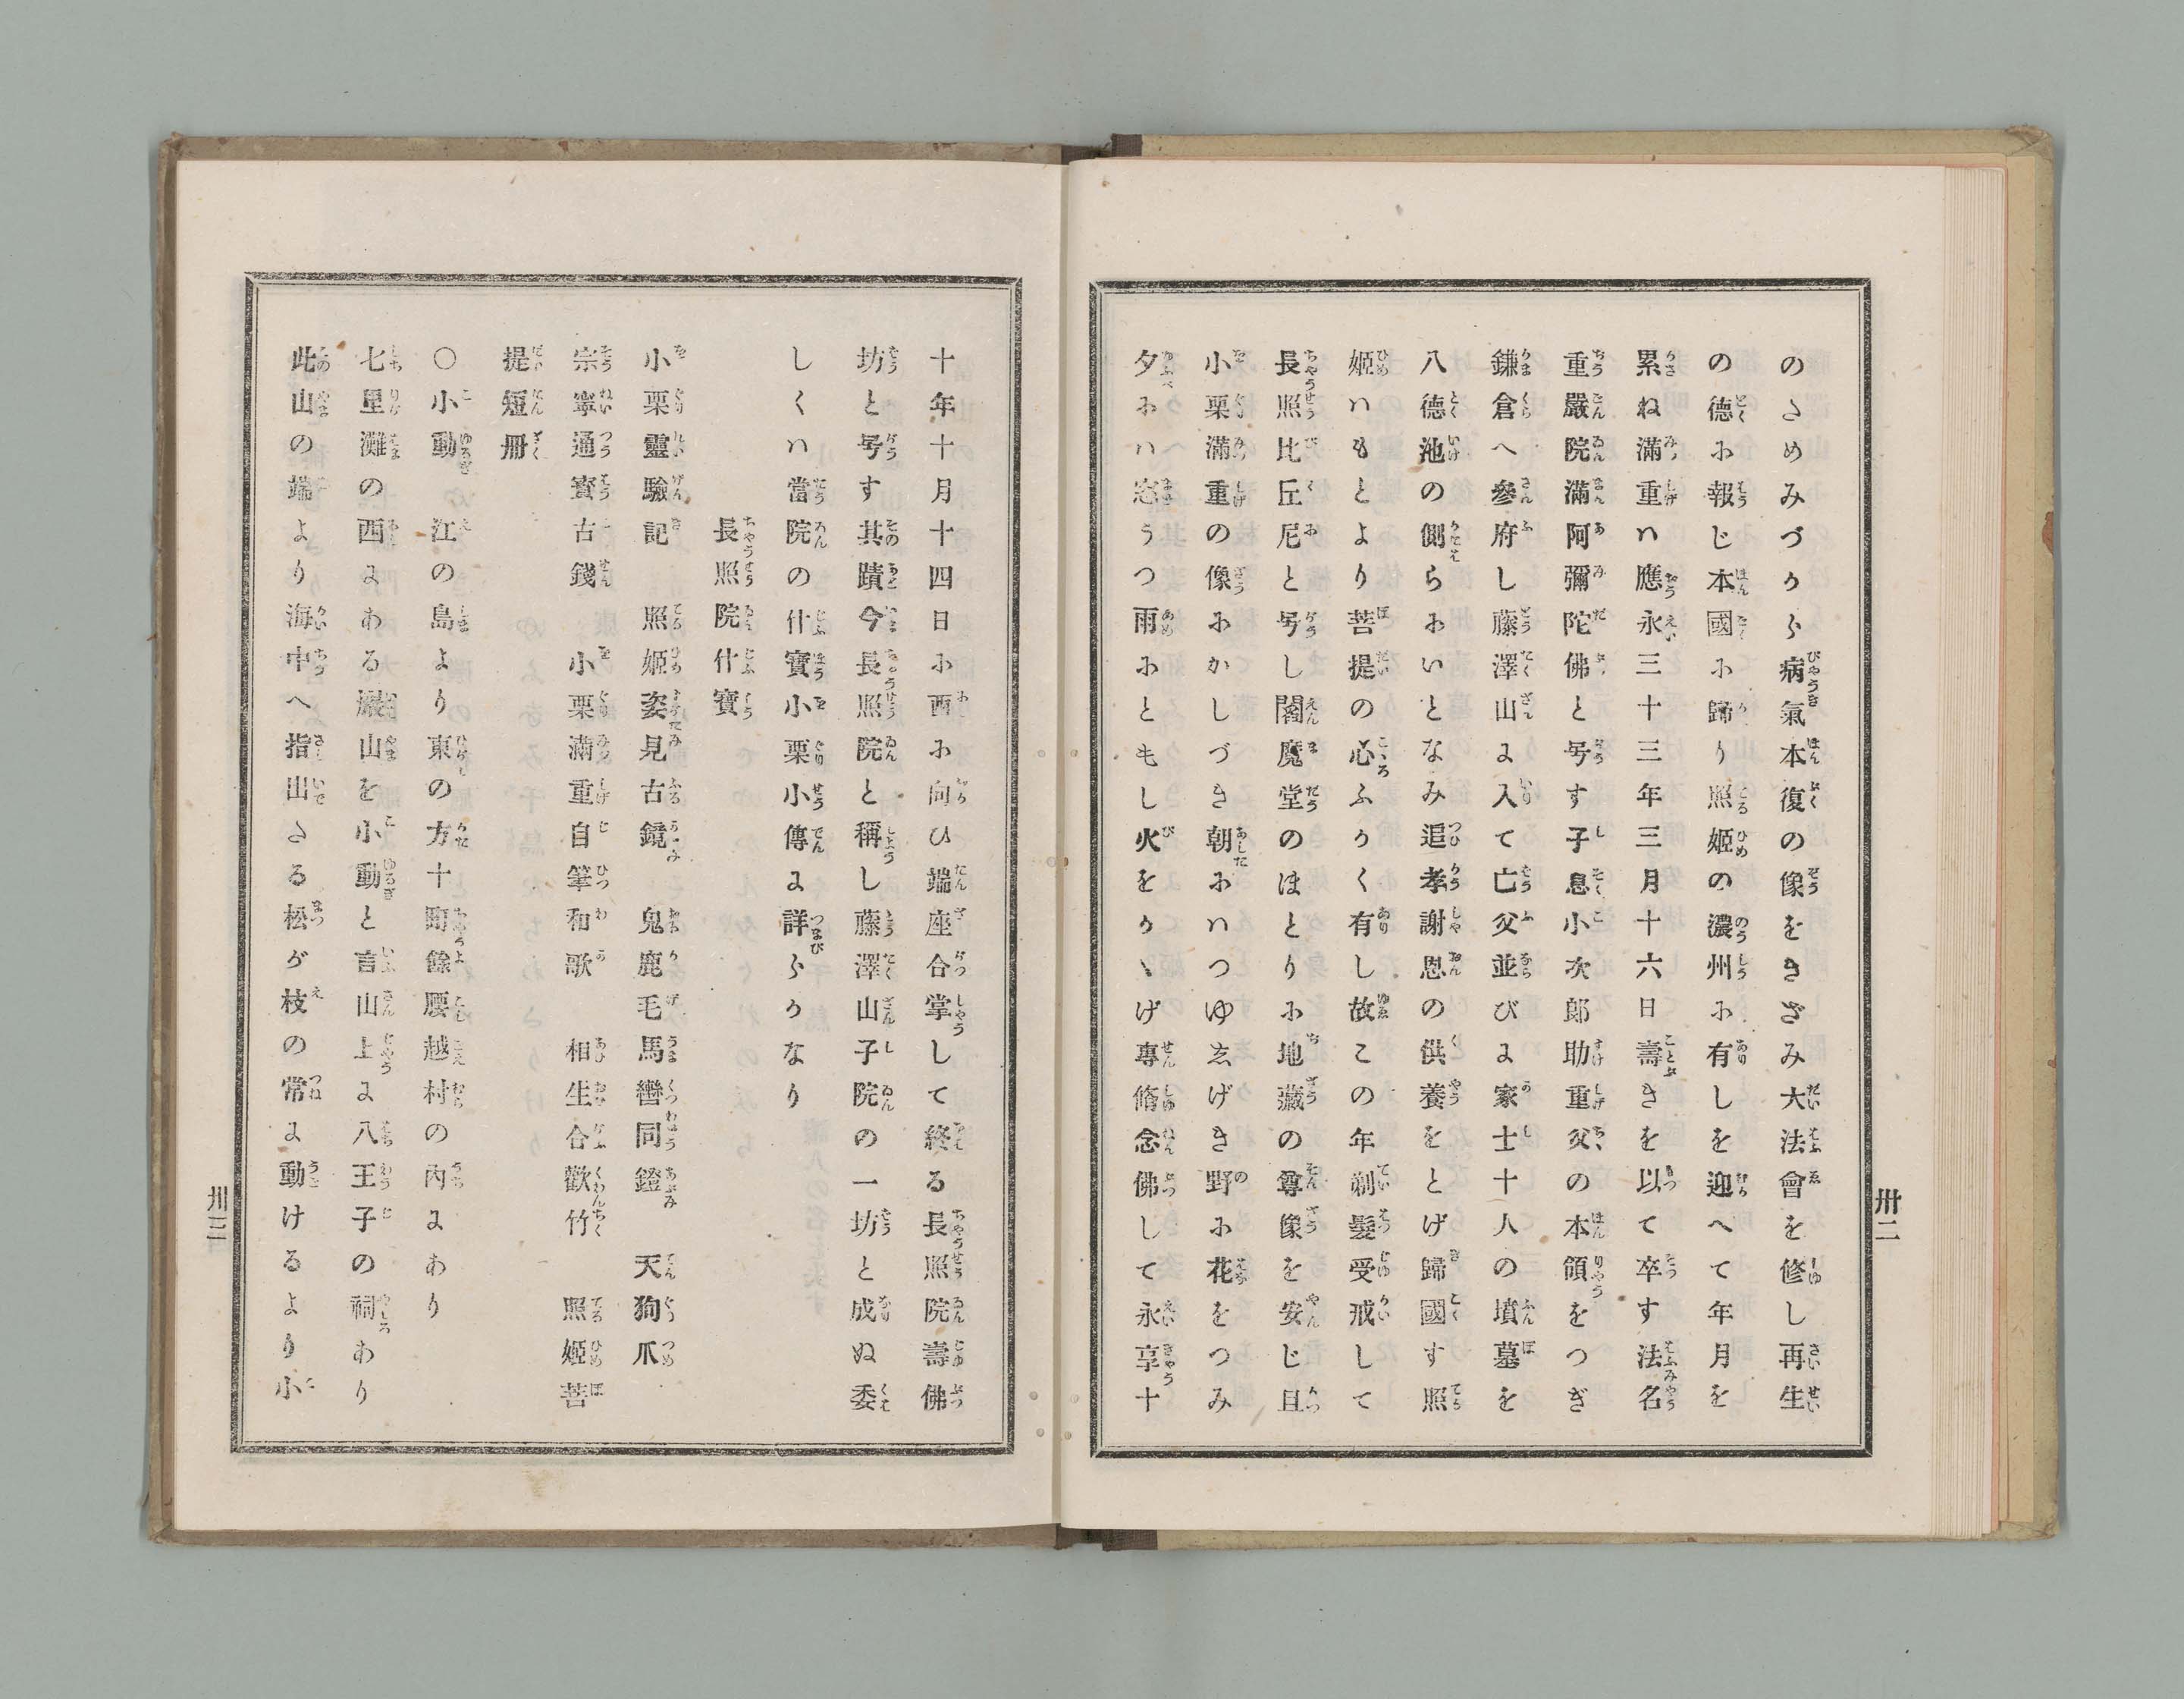 のためみづから病氣本復の像をきざみ大法會を修し再生
の德に報じ本國に歸り照姬の濃州に有しを迎へて年月を
累ね滿重ハ應永三十三年三月十六日壽きを以て卒す法名
重嚴院滿阿彌陀佛と号す子息小次郎助重父の本領をつぎ
鎌倉へ參府し藤澤山に入て亡父並びに家士十人の墳墓を
八德池の側らにいとなみ追孝謝恩の供養をとげ歸國す照
姬ハもとより菩提の心ふかく有し故この年剃髮受戒して
長照比丘尼と号し閻魔堂のほとりに地藏の尊像を安じ且
小栗滿重の像にかしづき朝にハつゆゑげき野に花をつみ
夕にハ窓うつ雨にともし火をかゝげ專脩念佛して永享十
卅二
十年十月十四日に西に向ひ端座合掌して終る長照院壽佛
坊と号す其蹟今長照院と稱し藤澤山子院の一坊と成ぬ委
しくハ當院の什寶小栗小傳に詳らかなり
長照院什寶
小栗靈驗記　照姬姿見古鏡　鬼鹿毛馬轡同鐙　天狗爪
宗寧通寳古錢　小栗滿重自筆和歌　相生合歡竹　照姬菩
提短冊
〇小動　江の島より東の方十町餘腰越村の内にあり
七里灘の西にある巖山を小動と言山上に八王子の祠あり
此山の端より海中へ指出たる松が枝の常に動けるより小
卅三